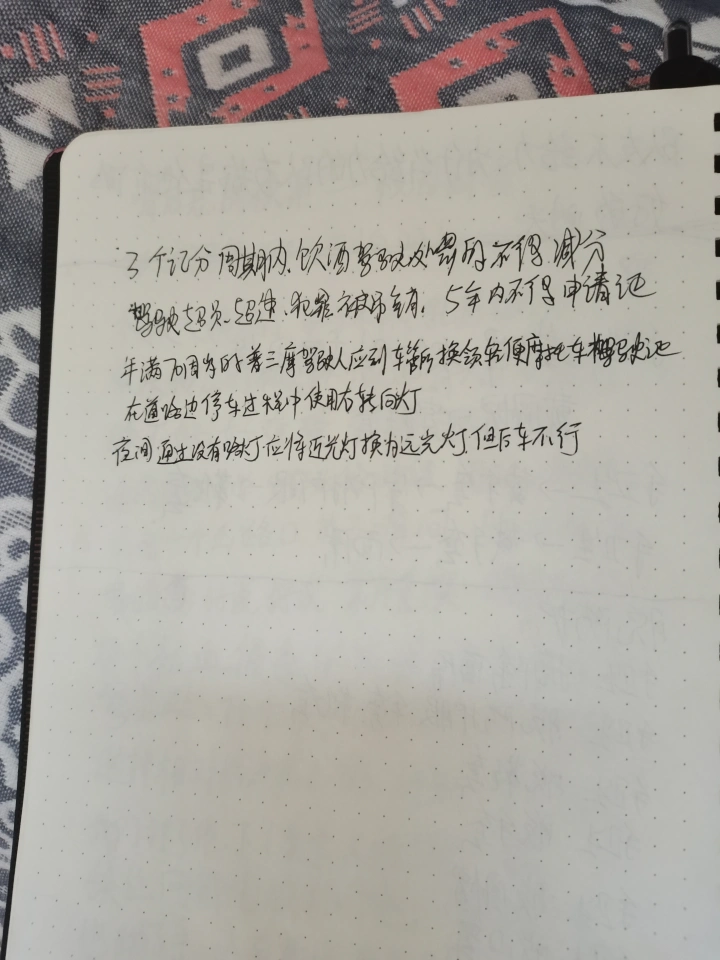 3个记分周期内,饮酒驾驶处罚的不得减分
驾驶超员、超速、犯罪被吊销,5年内不得申请证
年满70周岁的普三摩驾驶人应到车管所换领轻便摩托车驾驶证
在道路边停车过程中使用右转向灯
夜间通过没有路灯应将近光灯换为远光灯,但后车不行